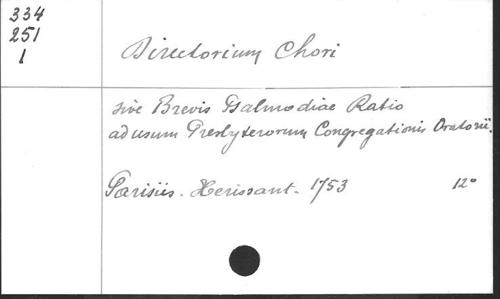 334
251
1
Directorium Chori
sive Brevis Psalmodiae Ratio
ad usum Presbyterorum Congregationis Oratorii.
Parisiis. Herissant. 1753 12°